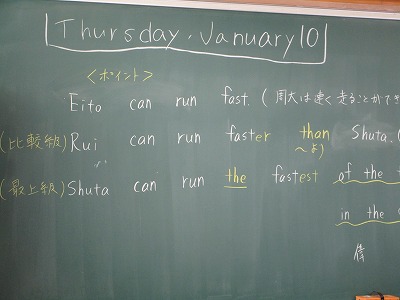 Thursday, January 10
<ポイント>
Eito can run fast. (周大は速く走ることができ
(比較級) Rui can run faster than Shuta.
〜より
(最上級) Shuta can run the fastest of the
in the